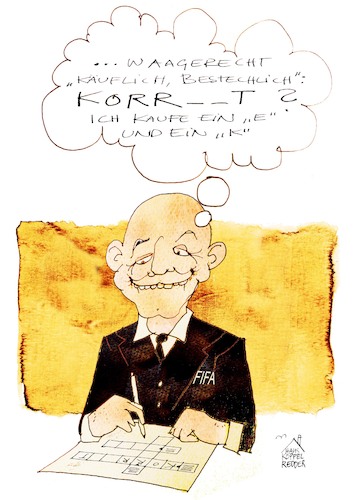 ... WAAGERECHT
„KÄUFLICH, BESTECHLICH":
KORR__T ?
ICH KAUFE EIN „E"
UND EIN „K"
FIFA
KOPPEL
REDDER